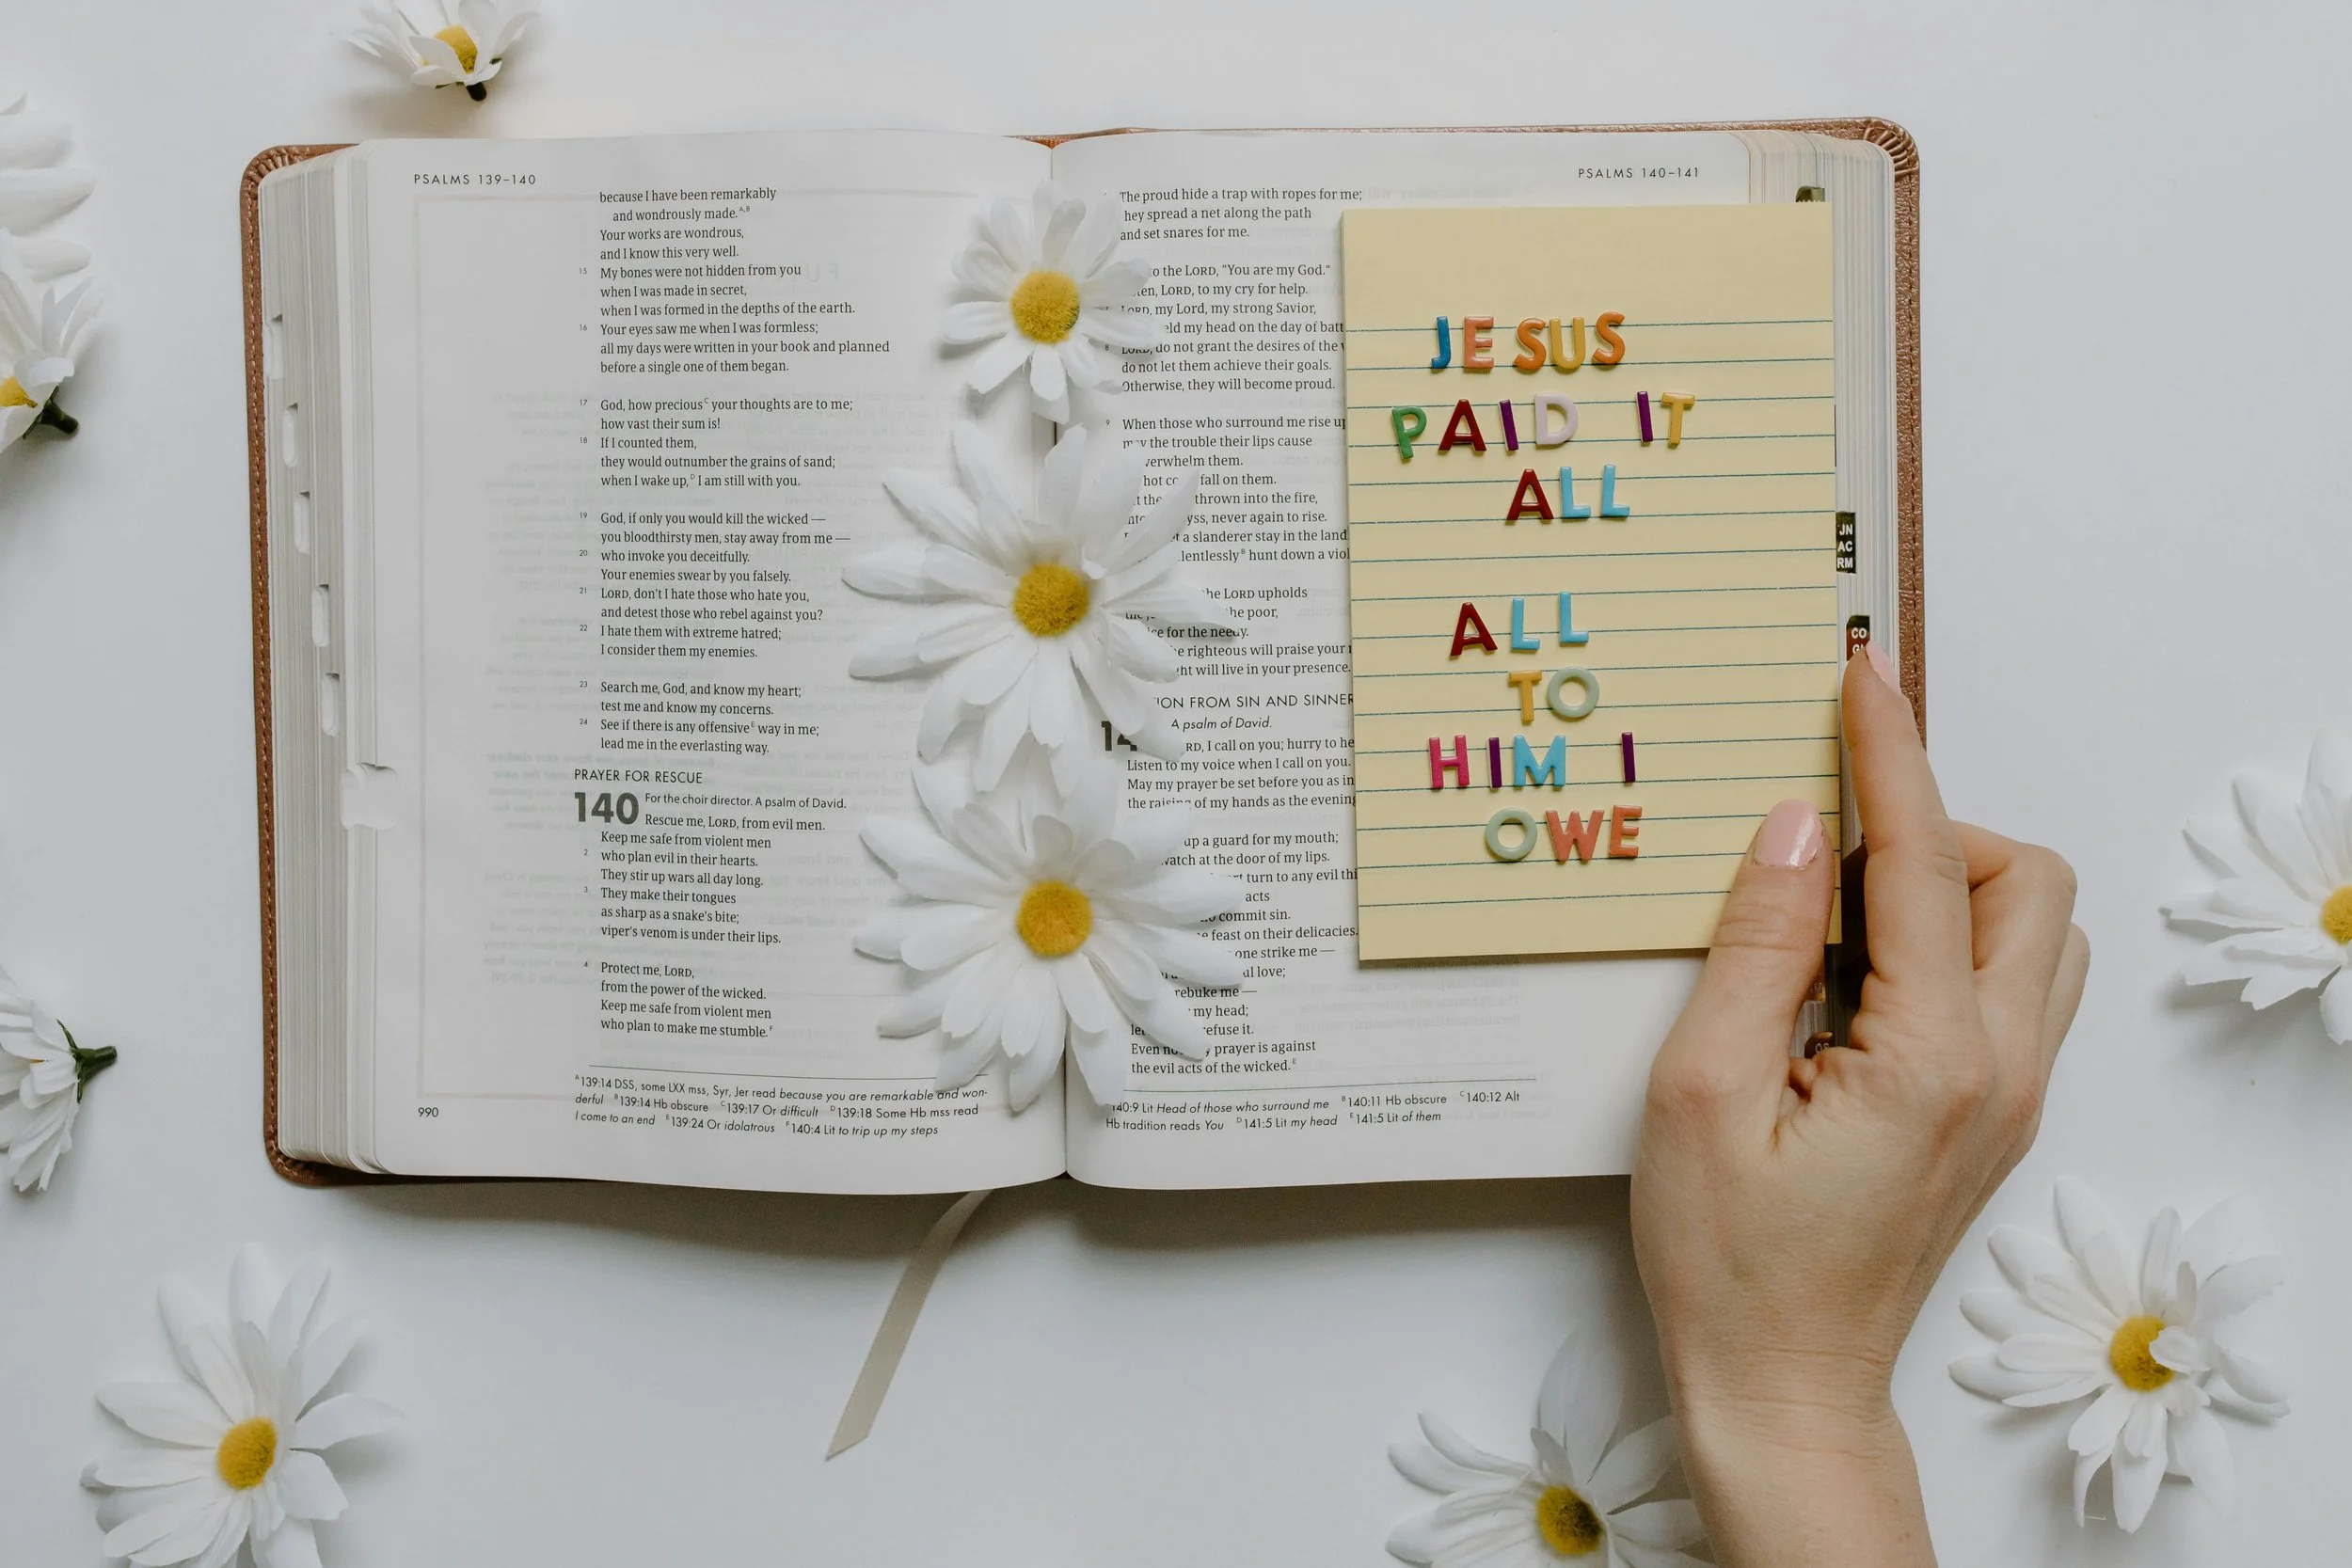 PSALMS 139–140
because I have been remarkably
and wondrously made.A,B
Your works are wondrous,
and I know this very well.
15 My bones were not hidden from you
when I was made in secret,
when I was formed in the depths of the earth.
16 Your eyes saw me when I was formless;
all my days were written in your book and planned
before a single one of them began.
17 God, how preciousC your thoughts are to me;
how vast their sum is!
18 If I counted them,
they would outnumber the grains of sand;
when I wake up,D I am still with you.
19 God, if only you would kill the wicked —
you bloodthirsty men, stay away from me —
20 who invoke you deceitfully.
Your enemies swear by you falsely.
21 LORD, don't I hate those who hate you,
and detest those who rebel against you?
22 I hate them with extreme hatred;
I consider them my enemies.
23 Search me, God, and know my heart;
test me and know my concerns.
24 See if there is any offensiveE way in me;
lead me in the everlasting way.
PRAYER FOR RESCUE
140 For the choir director. A psalm of David.
Rescue me, LORD, from evil men.
Keep me safe from violent men
2 who plan evil in their hearts.
They stir up wars all day long.
3 They make their tongues
as sharp as a snake's bite;
viper's venom is under their lips.
4 Protect me, LORD,
from the power of the wicked.
Keep me safe from violent men
who plan to make me stumble.F
A139:14 DSS, some LXX mss, Syr, Jer read because you are remarkable and won-
derful B139:14 Hb obscure C139:17 Or difficult D139:18 Some Hb mss read
I come to an end E139:24 Or idolatrous F140:4 Lit to trip up my steps
990
PSALMS 140–141
The proud hide a trap with ropes for me;
hey spread a net along the path
and set snares for me.
to the LORD, "You are my God."
LORD, to my cry for help.
my Lord, my strong Savior,
my head on the day of
8 LORD, do not grant the desires of the
do not let them achieve their goals.
Otherwise, they will become proud.
9 When those who surround me rise
the trouble their lips cause
overwhelm them.
hot fall on them.
thrown into the fire,
never again to rise.
a slanderer stay in the land
hunt down a
the LORD upholds
the poor,
for the needy.
righteous will praise your
will live in your presence.
FROM SIN AND
A psalm of David.
I call on you; hurry to
Listen to my voice when I call on you.
May my prayer be set before you as
the raising of my hands as the evening
up a guard for my mouth;
at the door of my lips.
turn to any evil
acts
commit sin.
feast on their delicacies.
one strike me —
love;
rebuke me —
my head;
refuse it.
Even prayer is against
the evil acts of the wicked.E
140:9 Lit Head of those who surround me B140:11 Hb obscure C140:12 Alt
Hb tradition reads You D141:5 Lit my head E141:5 Lit of them
JESUS
PAID IT
ALL
ALL
TO
HIM I
OWE
JN
AC
RM
CO